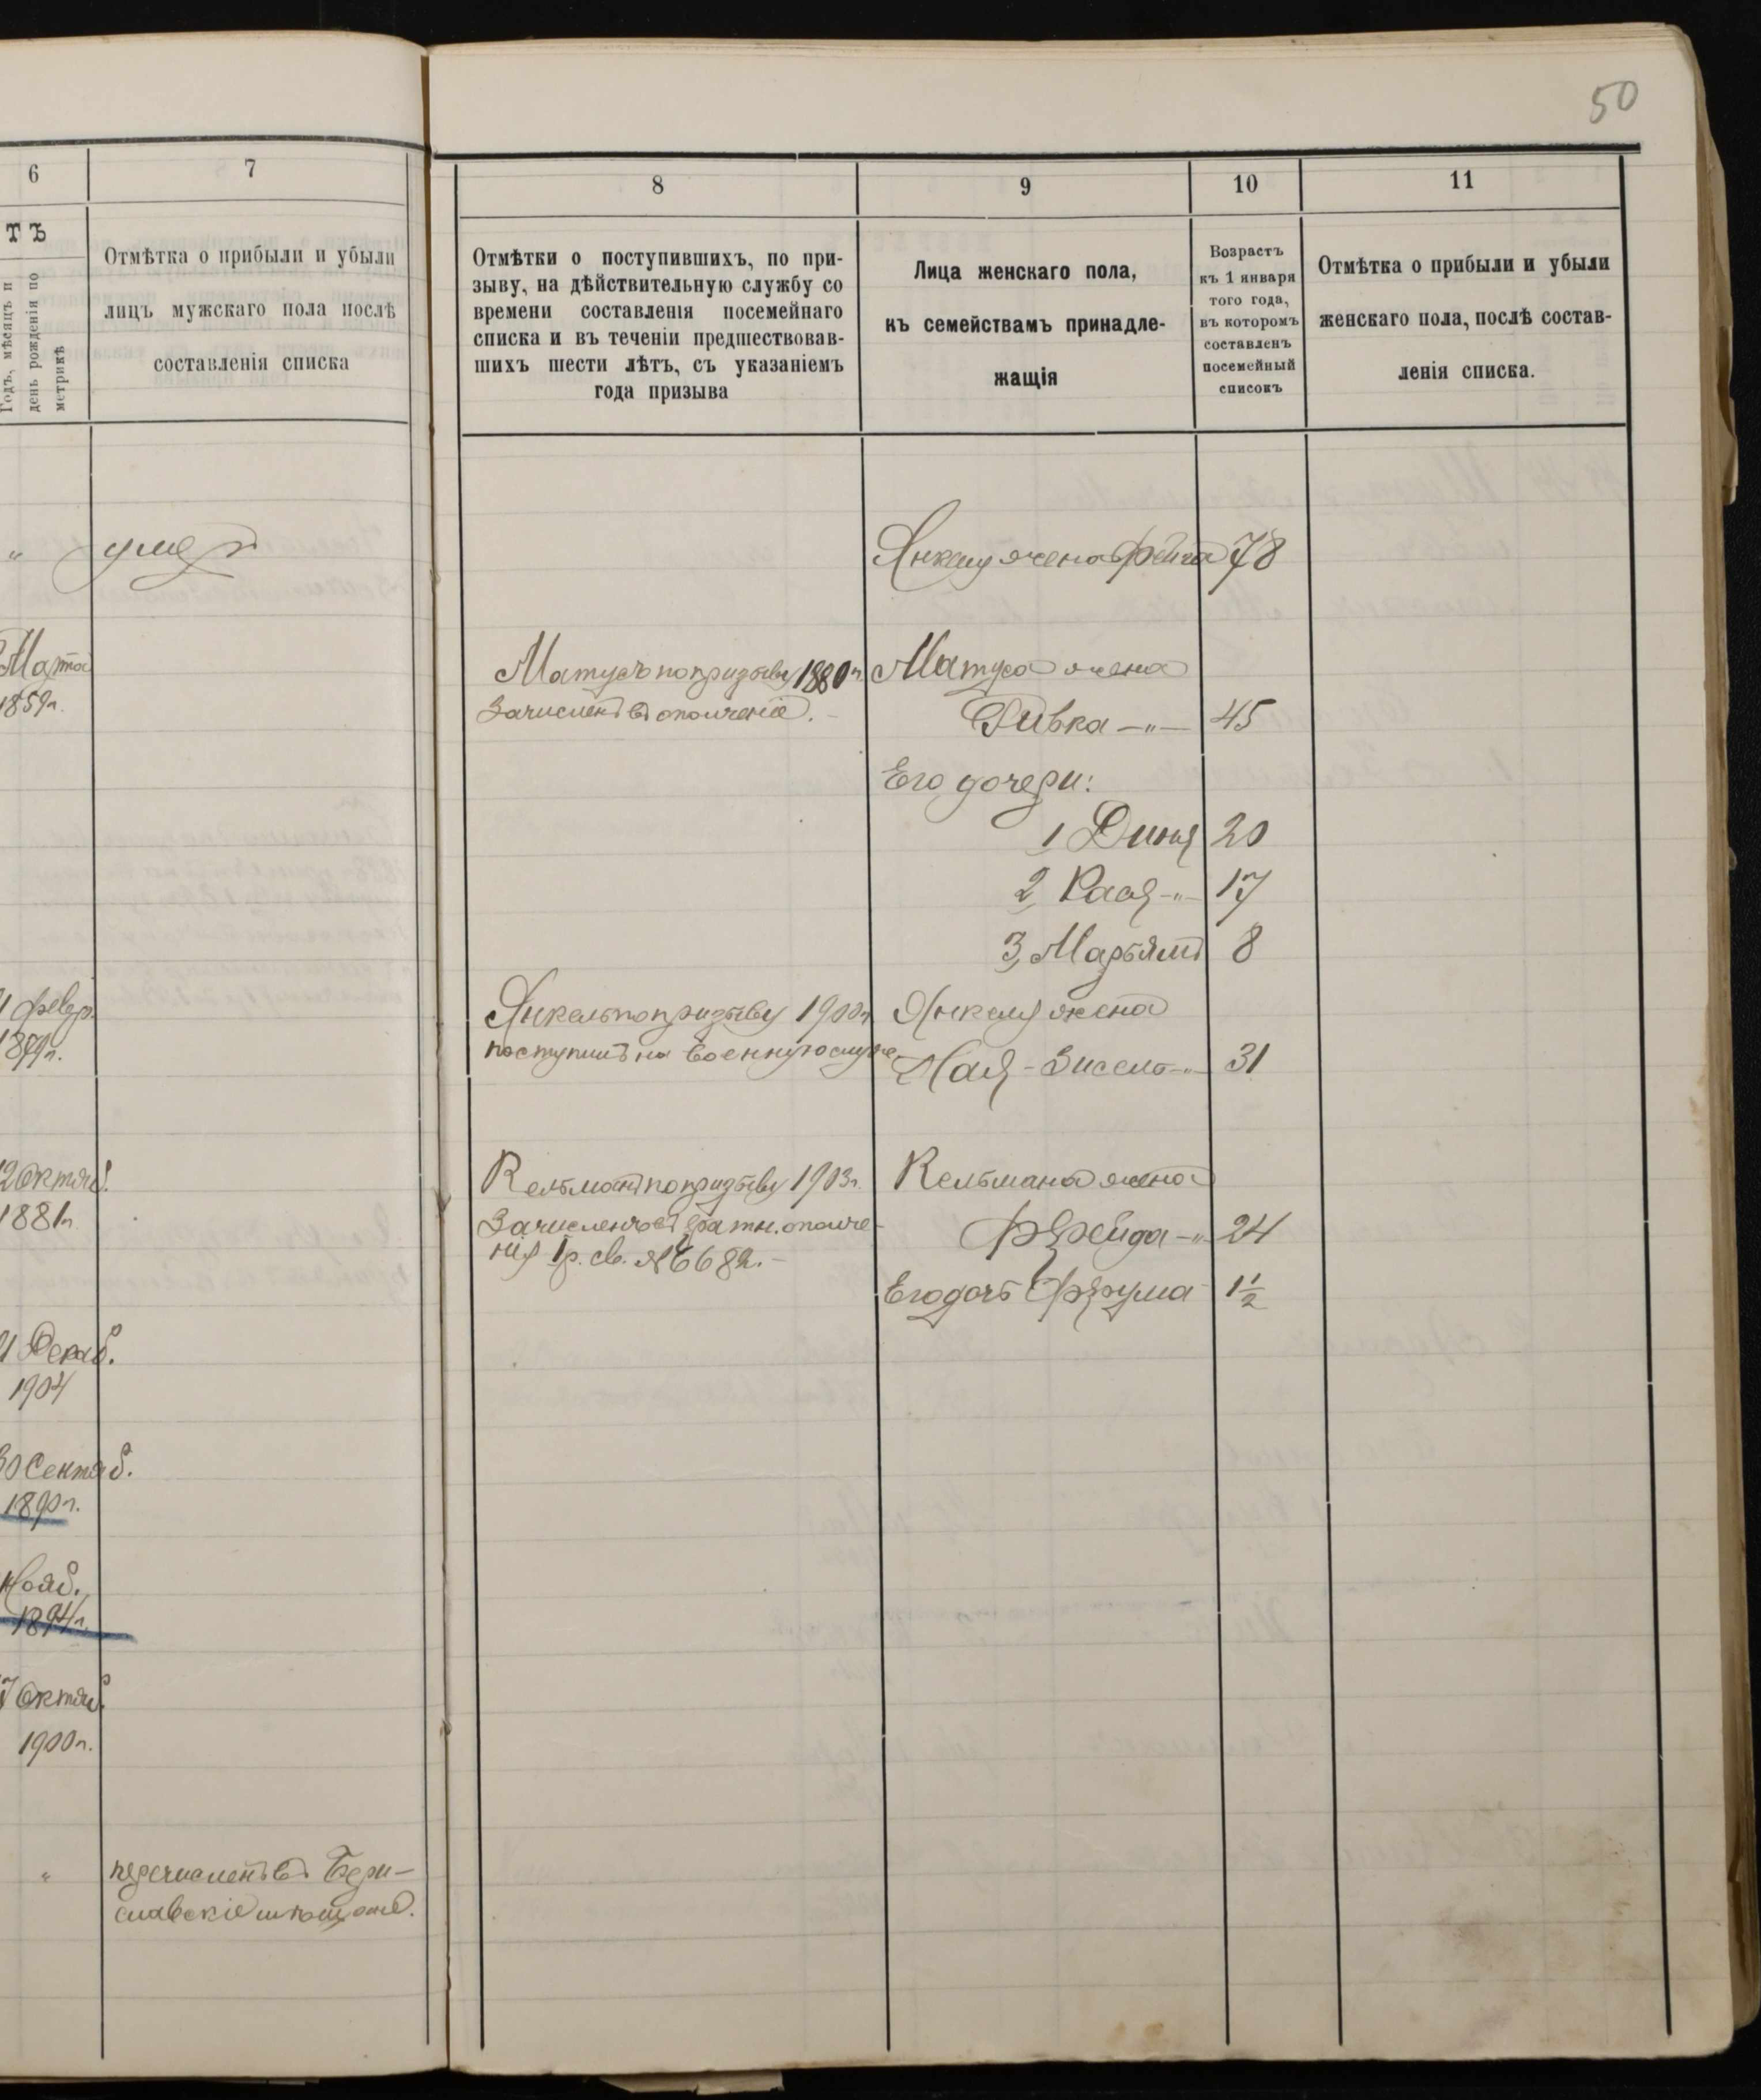 50
6
7
8
9
10
11
ТЪ
Годъ, мѣсяцъ и
день рожденія по
метрикѣ
Отмѣтка о прибыли и убыли
лицъ мужскаго пола послѣ
составленія списка
Отмѣтки о поступившихъ, по при-
зыву, на дѣйствительную службу со
времени составленія посемейнаго
списка и въ теченіи предшествовав-
шихъ шести лѣтъ, съ указаніемъ
года призыва
Лица женскаго пола,
къ семействамъ принадле-
жащія
Возрастъ
къ 1 января
того года,
въ которомъ
составленъ
посемейный
списокъ
Отмѣтка о прибыли и убыли
женскаго пола, послѣ состав-
ленія списка.
" умеръ
Янкеля жена Фейга 78
Марта
1859г.
Матусъ по призыву 1880г.
Зачисленъ въ ополченіе.
Матуса жена
Ривка -"- 45
Его дочери:
1 Диня 20
2, Рася -"- 17
3, Марьямъ 8
1 Февр.
1879г.
Янкель по призыву 1900г.
поступилъ на военную служ.
Янкеля жена
Хая-Зисель -"- 31
2 Октяб.
1881г.
Кельманъ по призыву 1903г.
Зачисленъ въ ратн. ополче-
нія 1 р. св. № 6682.-
Кельмана жена
Фрейда -"- 24
Его дочь Фрума 1 1/2
1 Декаб.
1904
30 Сентяб.
1890г.
Нояб.
1894г.
7 Октяб.
1900г.
" перечисленъ въ Бери-
славскіе мѣщане.